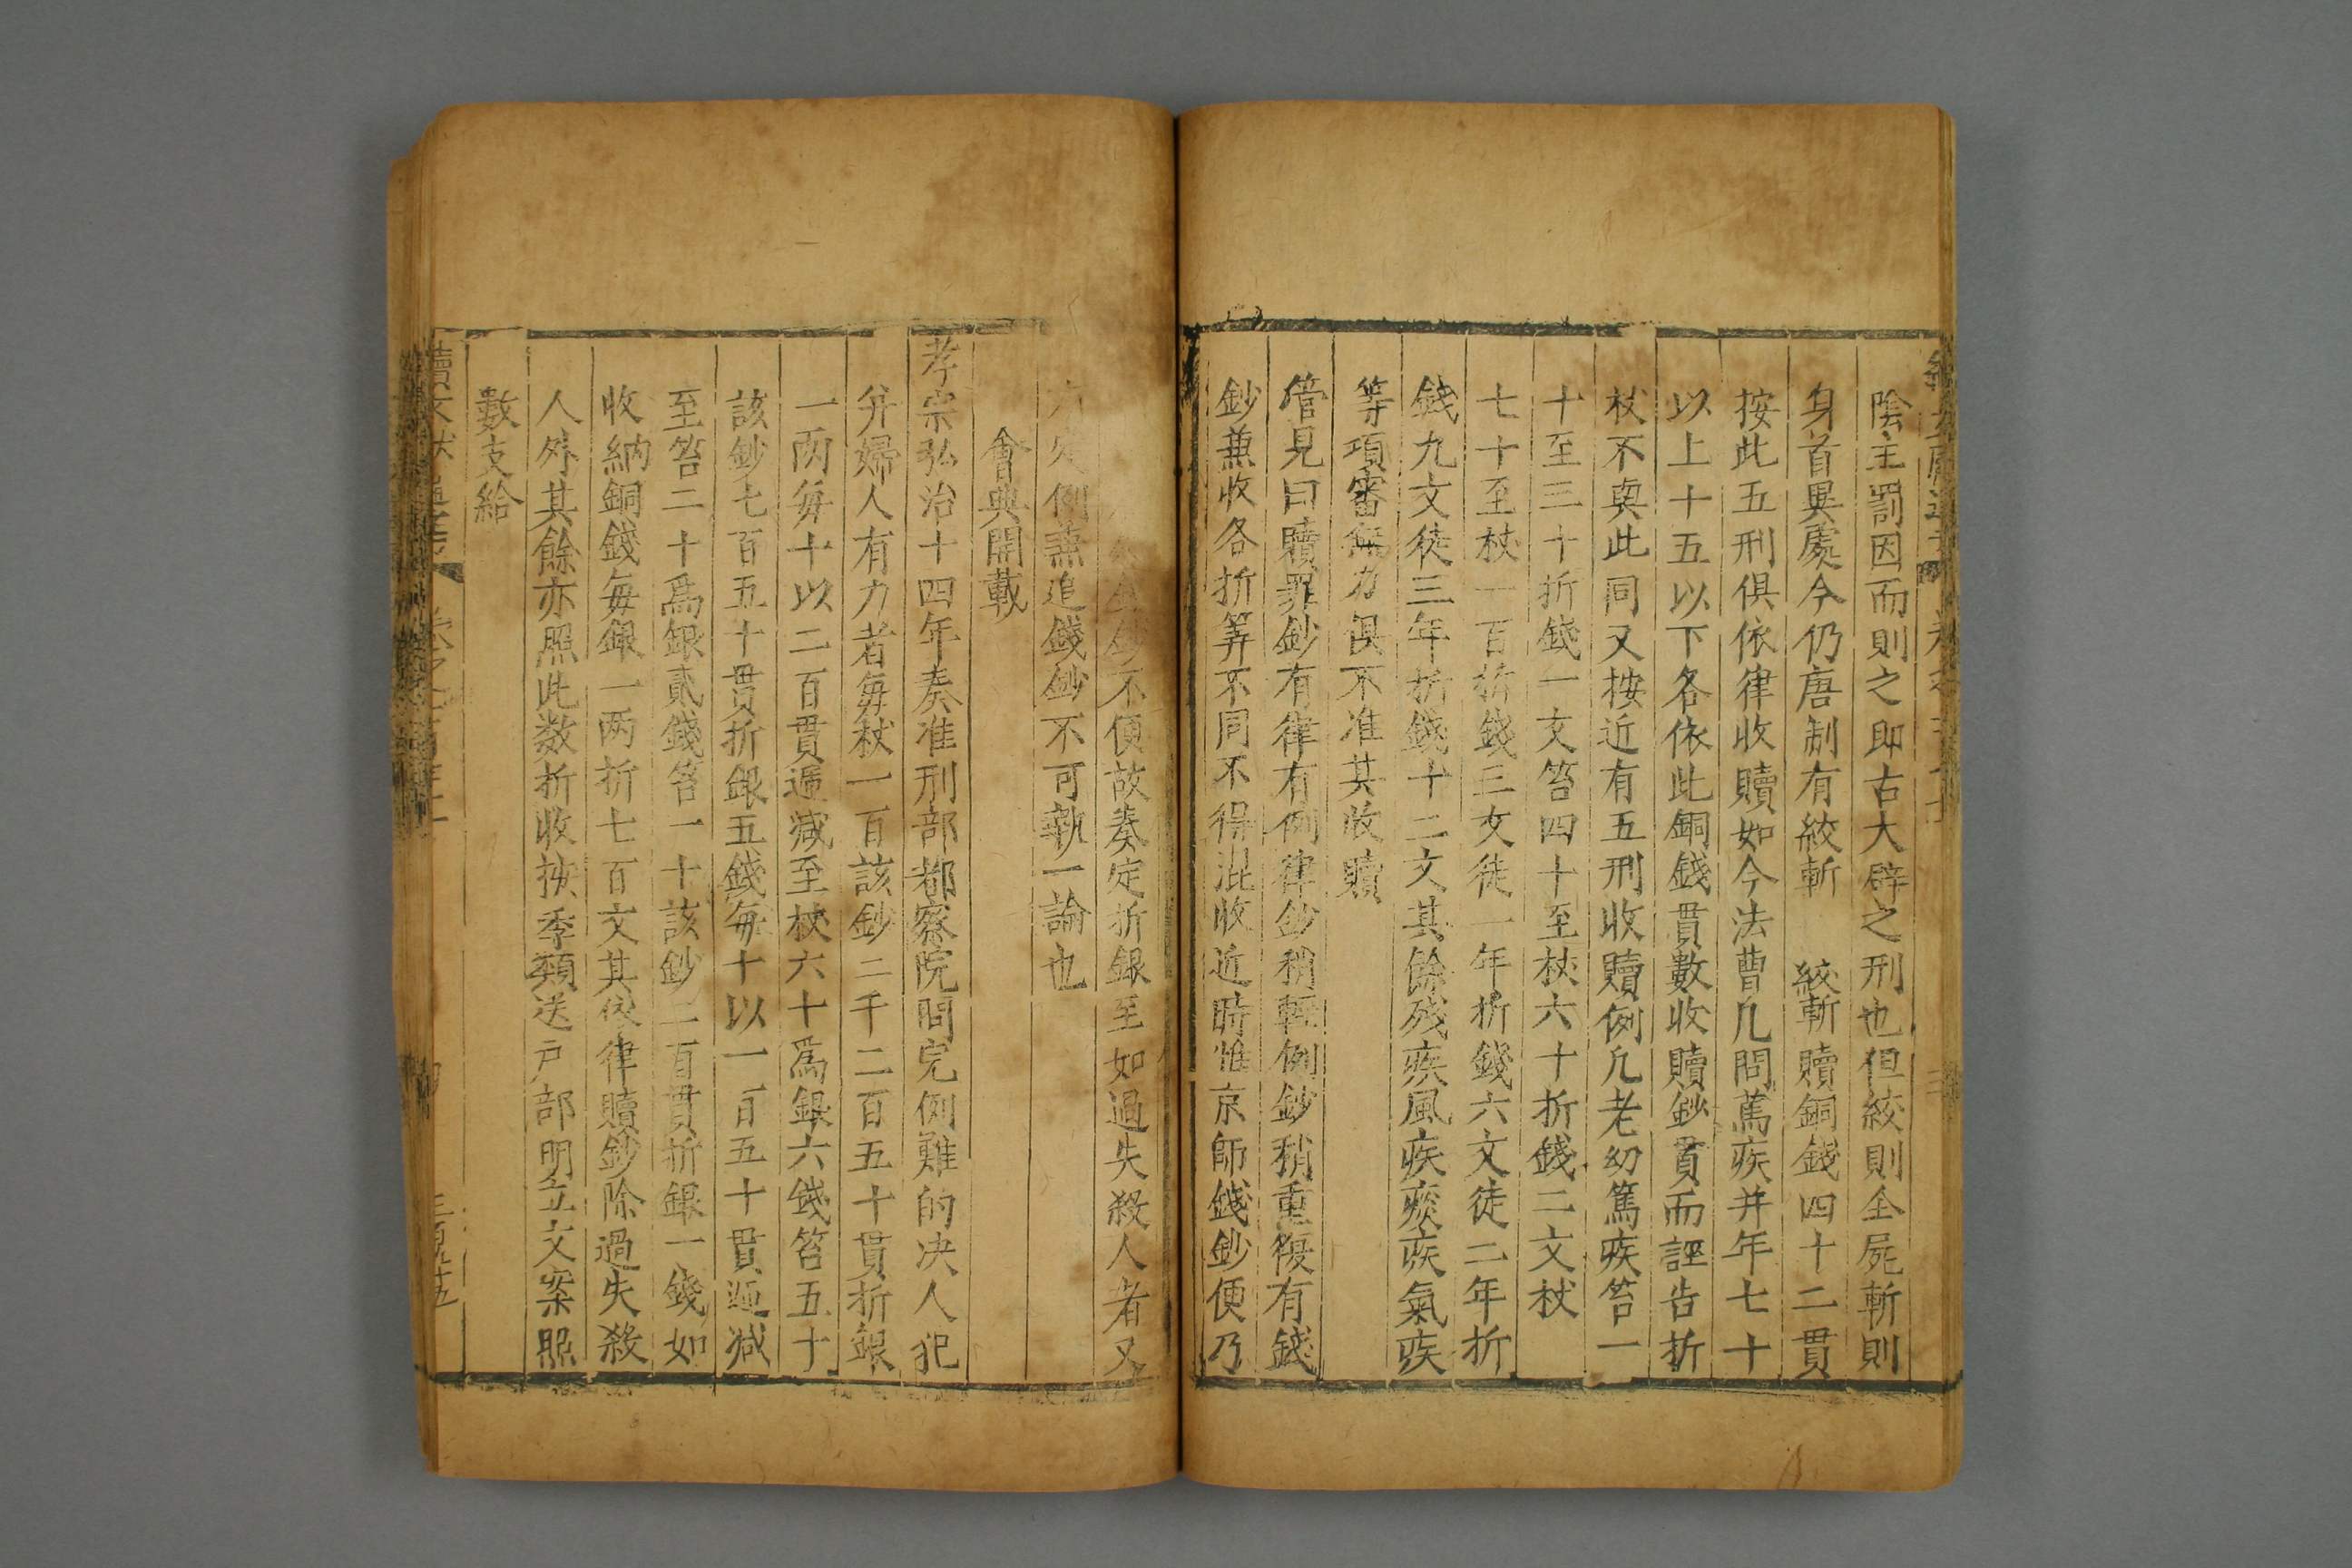 陰主罰因而則之即古大辟之刑也但絞則全屍斬則
身首異處今仍唐制有絞斬　絞斬贖銅錢四十二貫
按此五刑俱依律收贖如今法曹凡問篤疾并年七十
以上十五以下各依此銅錢貫數收贖鈔貫而誣告折
杖不與此同又按近有五刑收贖例凡老幼篤疾笞一
十至三十折錢一文笞四十至杖六十折錢二文杖
七十至杖一百折錢三文徒一年折錢六文徒二年折
錢九文徒三年折錢十二文其餘殘疾風疾痰疾氣疾
等項審無力俱不准其收贖
管見曰贖罪鈔有律有例律鈔稍輕例鈔稍重復有錢
鈔兼收各折筭不同不得混收近時惟京師錢鈔便乃
鈔不便故奏定折銀至如過失殺人者又
定例兼追錢鈔不可執一論也
會典開載
孝宗弘治十四年奏准刑部都察院問完例難的决人犯
并婦人有力者每杖一百該鈔二千二百五十貫折銀
一兩每十以二百貫遞減至杖六十爲銀六錢笞五十
該鈔七百五十貫折銀五錢每十以一百五十貫遞減
至笞二十爲銀貳錢笞一十該鈔二百貫折銀一錢如
收納銅錢每銀一两折七百文其依律贖鈔除過失殺
人外其餘亦照此数折收按季類送户部明立文案照
數支給